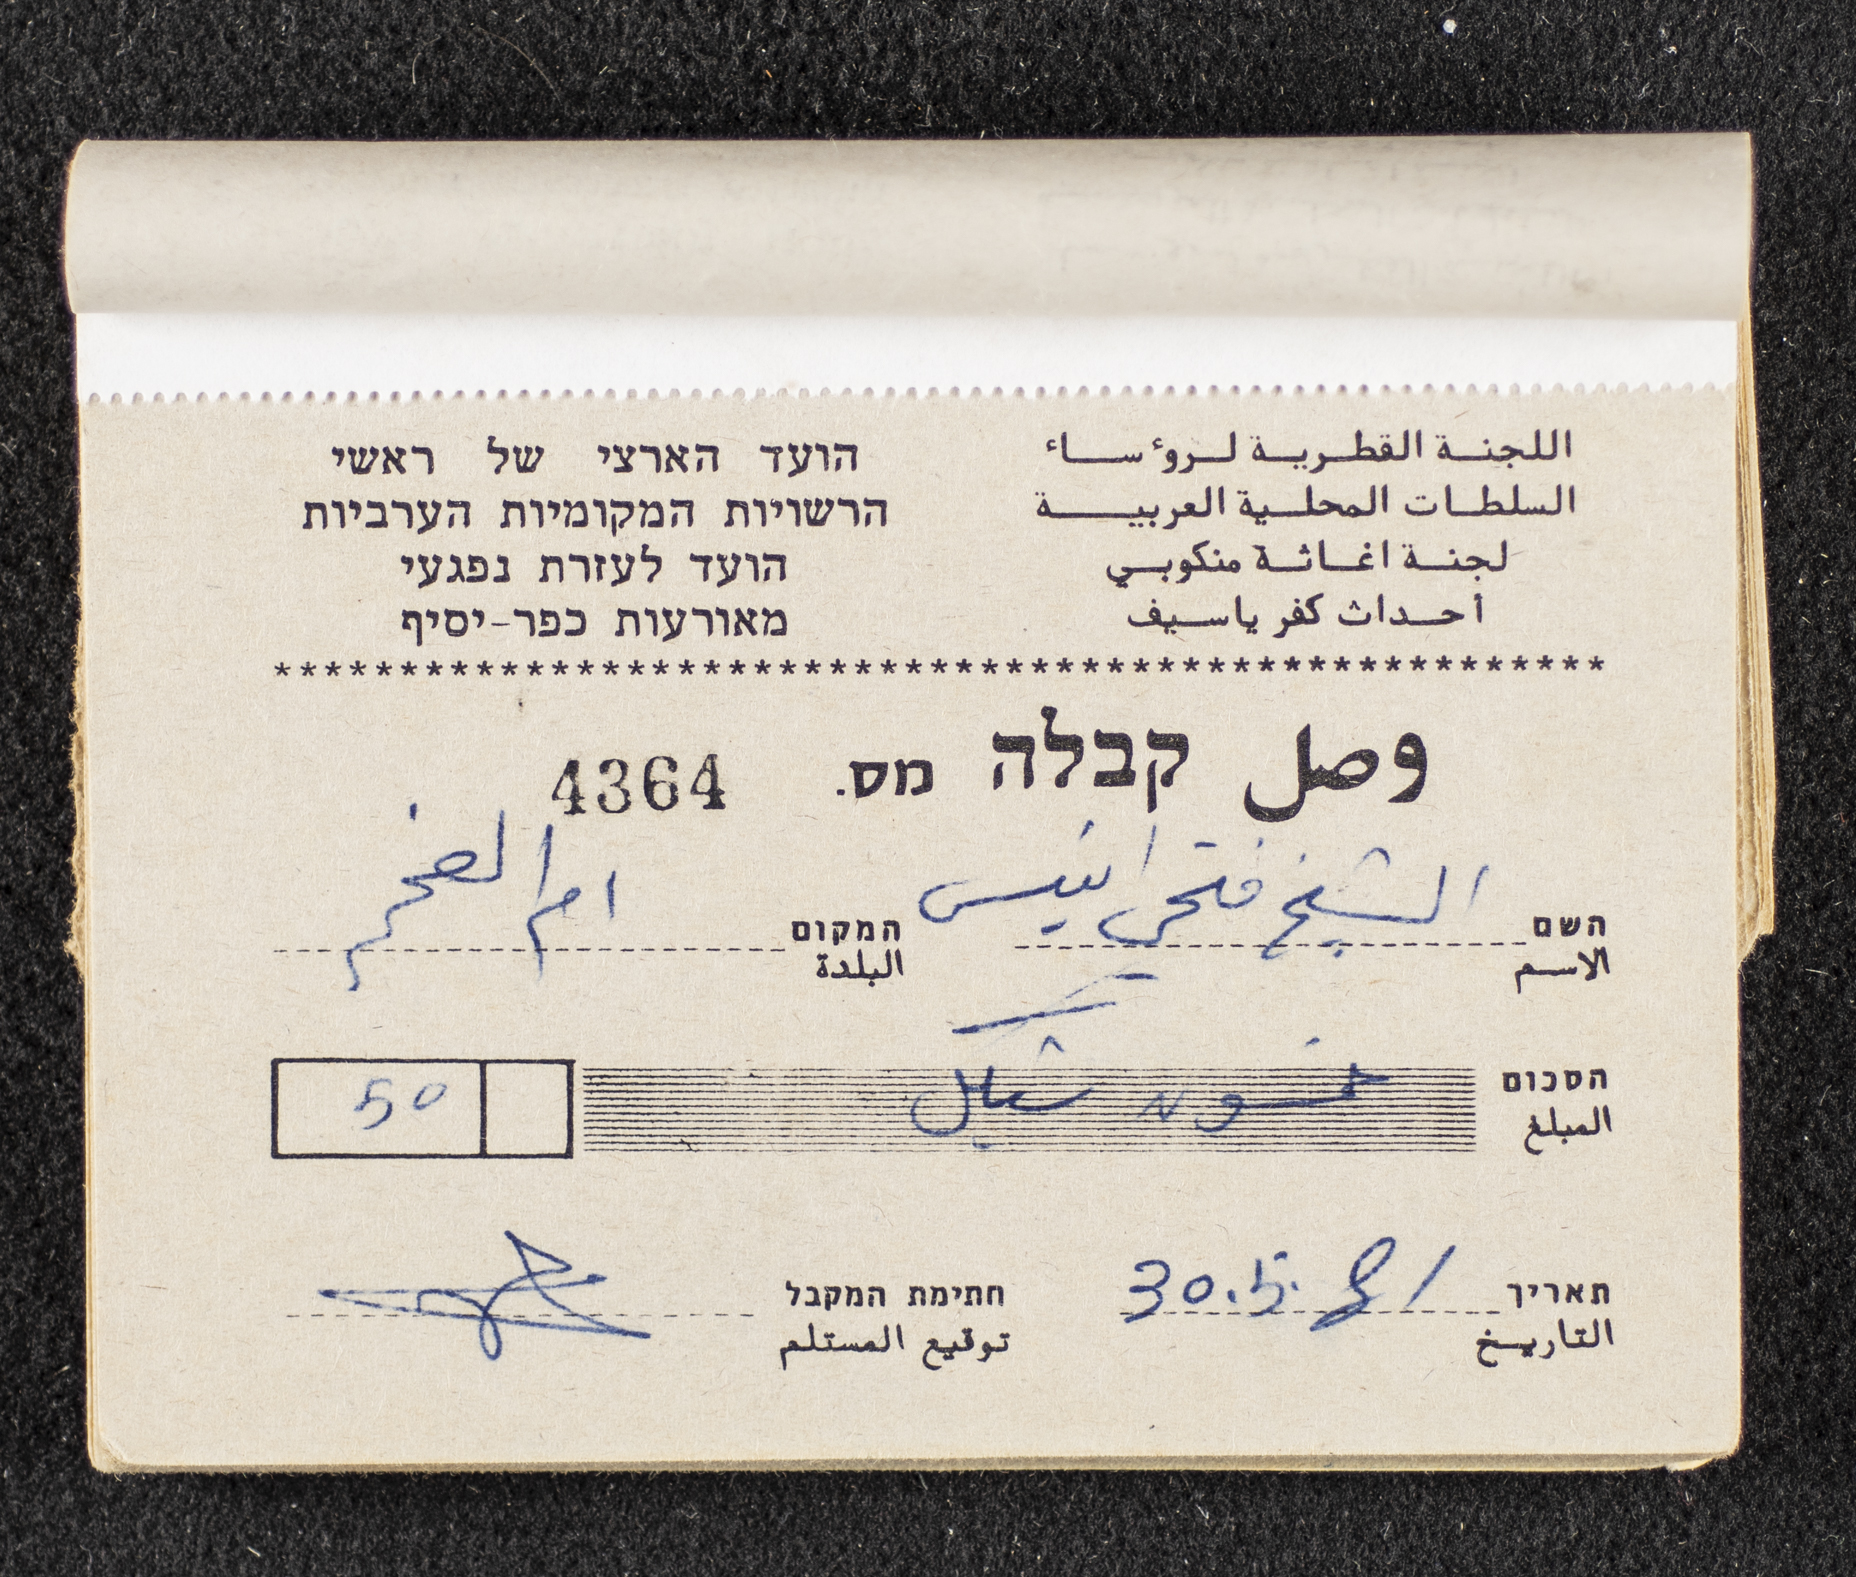 اللجنة القطرية لروءساء
السلطات المحلية العربية
لجنة اغاثة منكوبي
أحداث كفر ياسيف
הועד הארצי של ראשי
הרשויות המקומיות הערביות
הועד לעזרת נפגעי
מאורעות כפר-יסיף
****************************************************
وصل קבלה מס. 4364
השם الشيخ فتحي انيس המקום ام الفحم
الاسم البلدة
הסכום خمسون شيكل 50
المبلغ
תאריך 30.5.81 חתימת המקבל
التاريخ توقيع المستلم